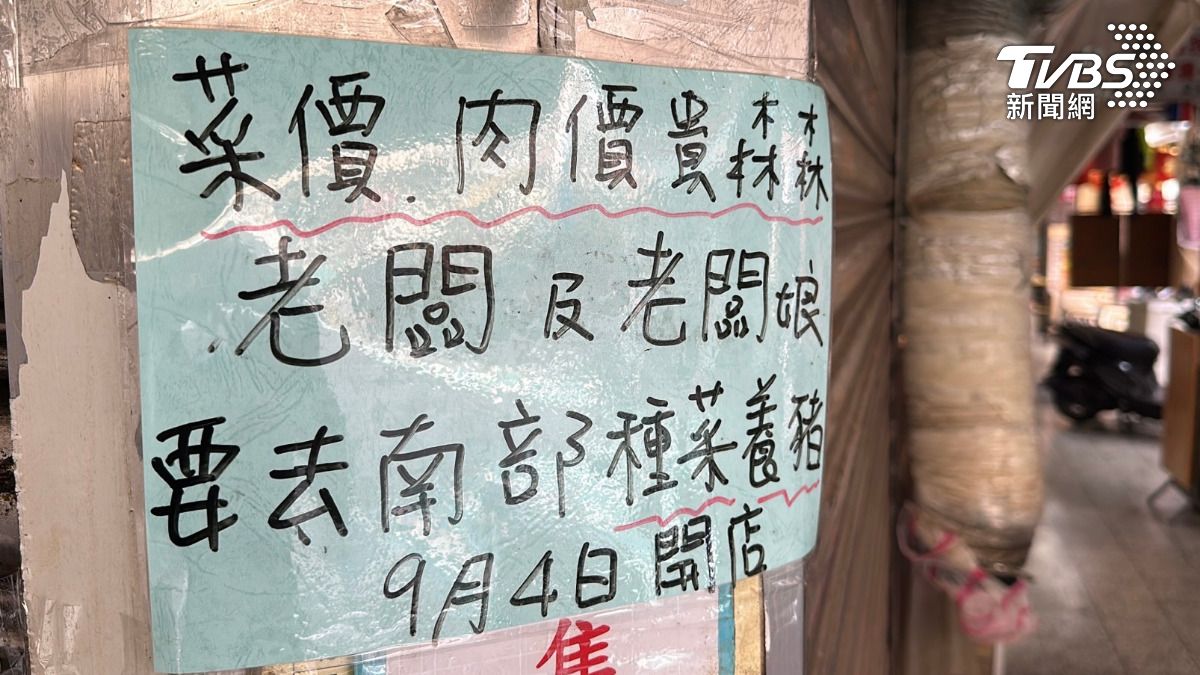 TVBS
新聞網
菜價.肉價貴森森
老闆及老闆娘
要去南部種菜養豬
9月4日開店
售